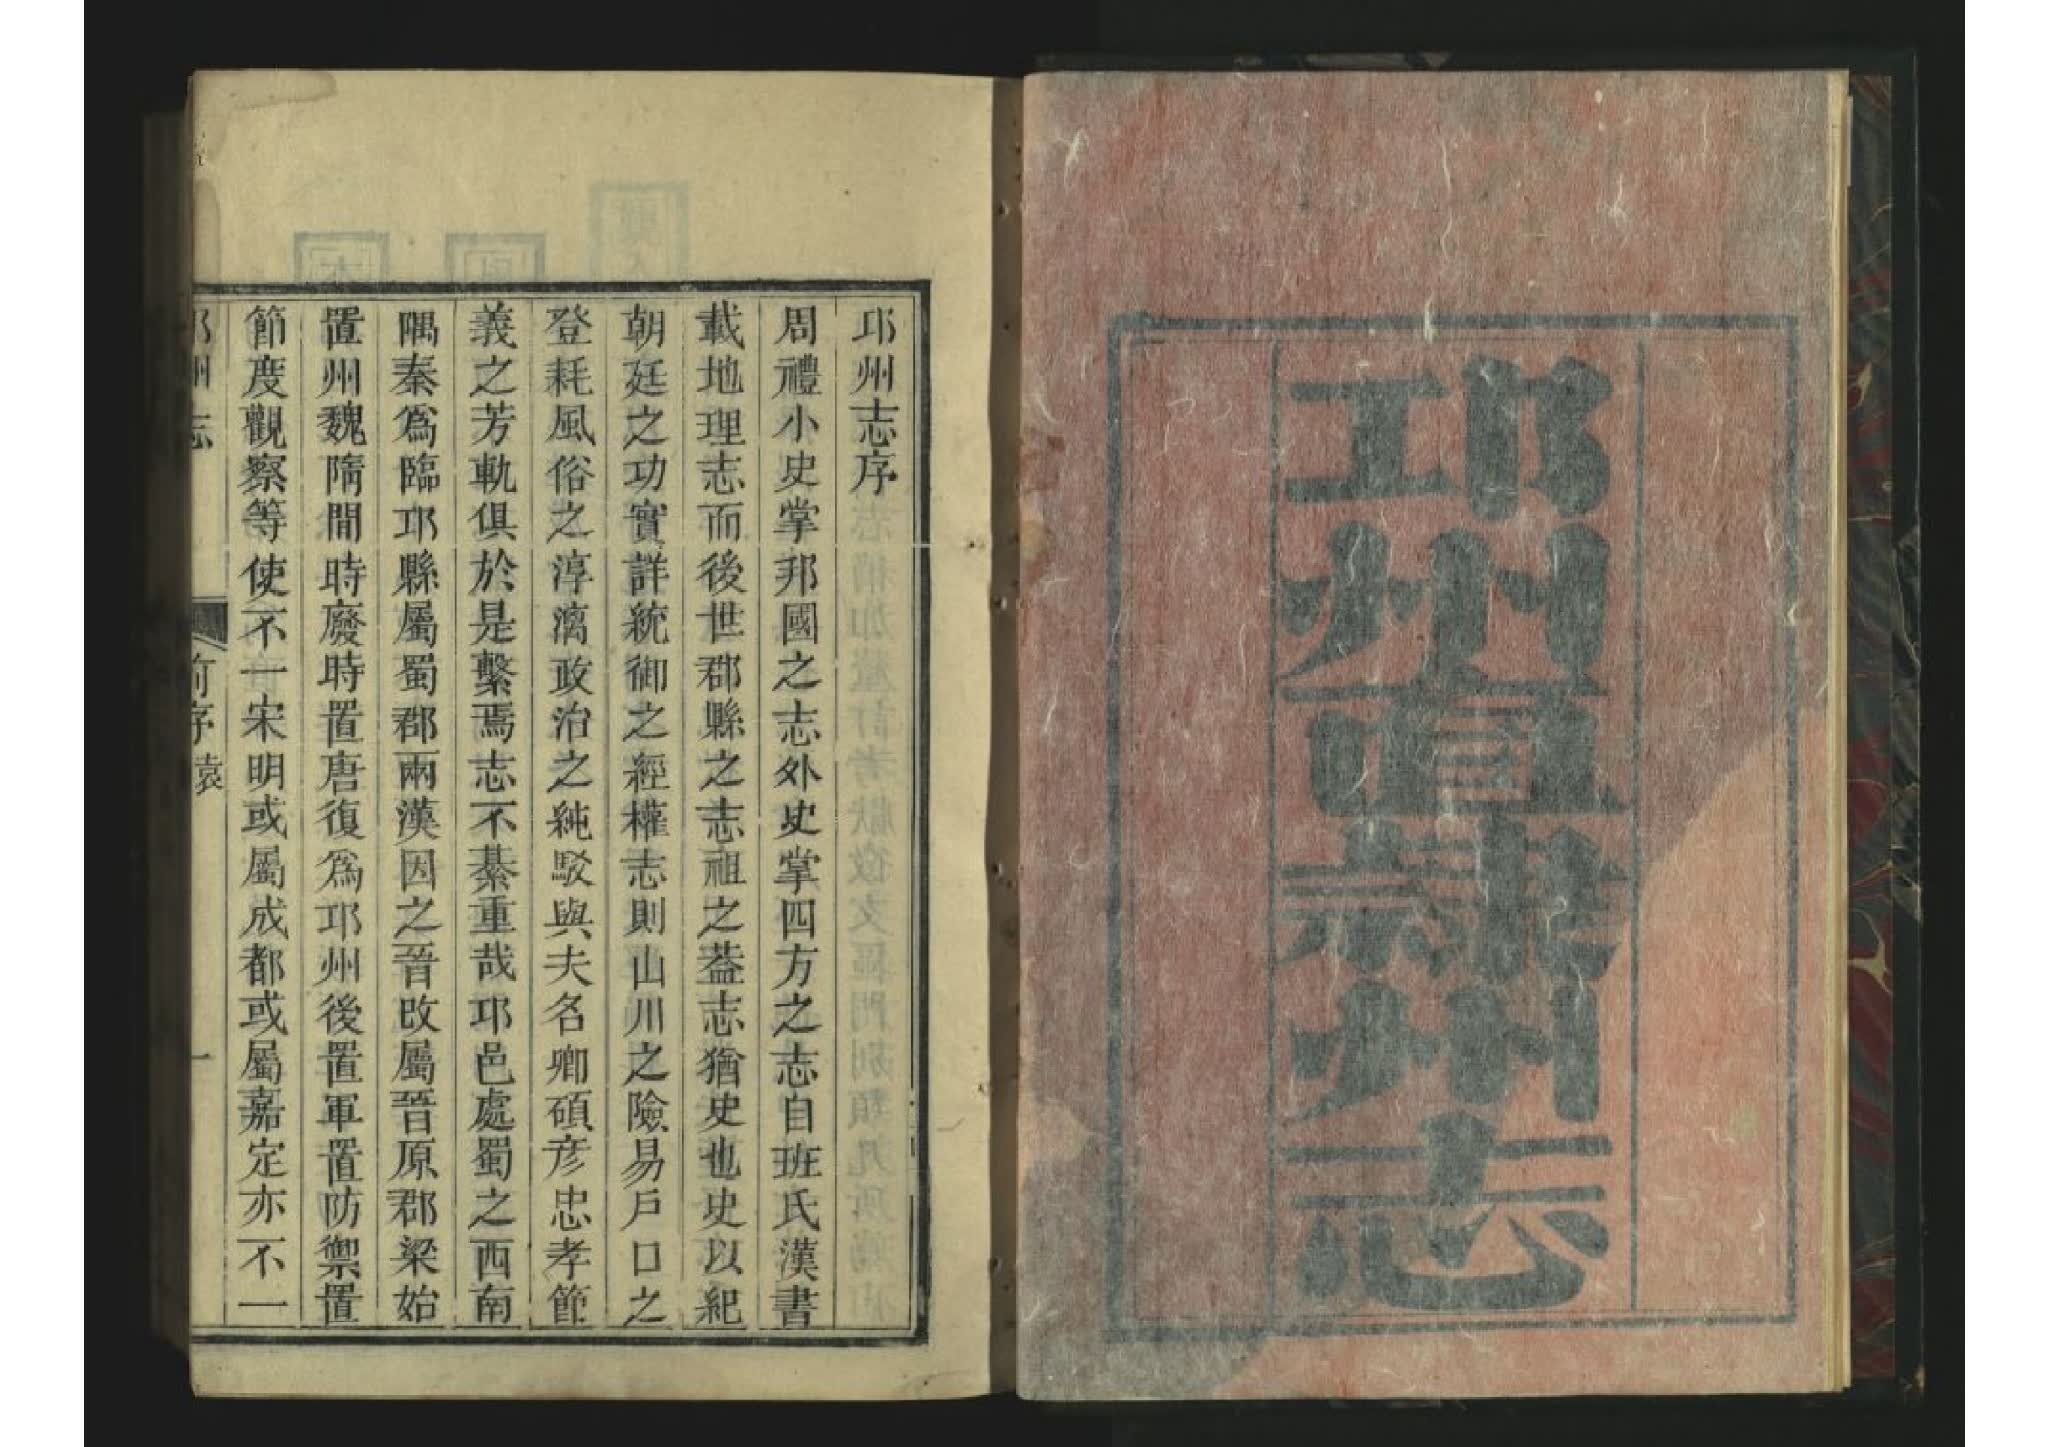 邛州直隸州志
邛州志序
周禮小史掌邦國之志外史掌四方之志自班氏漢書
載地理志而後世郡縣之志祖之葢志猶史也史以紀
朝廷之功實詳統御之經權志則山川之險易戶口之
登耗風俗之淳漓政治之純駁與夫名卿碩彥忠孝節
義之芳軌俱於是繫焉志不綦重哉邛邑處蜀之西南
隅秦爲臨邛縣屬蜀郡兩漢因之晉改屬晉原郡梁始
置州魏隋間時廢時置唐復爲邛州後置軍置防禦置
節度觀察等使不一宋明或屬成都或屬嘉定亦不一
邛州志
序 袁
一